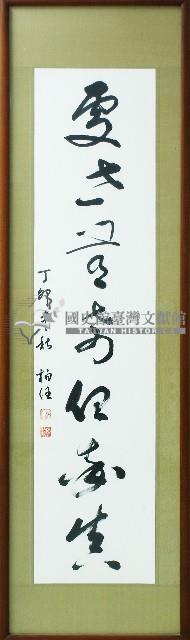 處世無奇但率真
丁卯秋 柏任
國史館臺灣文獻館
TAIWAN HISTORICA